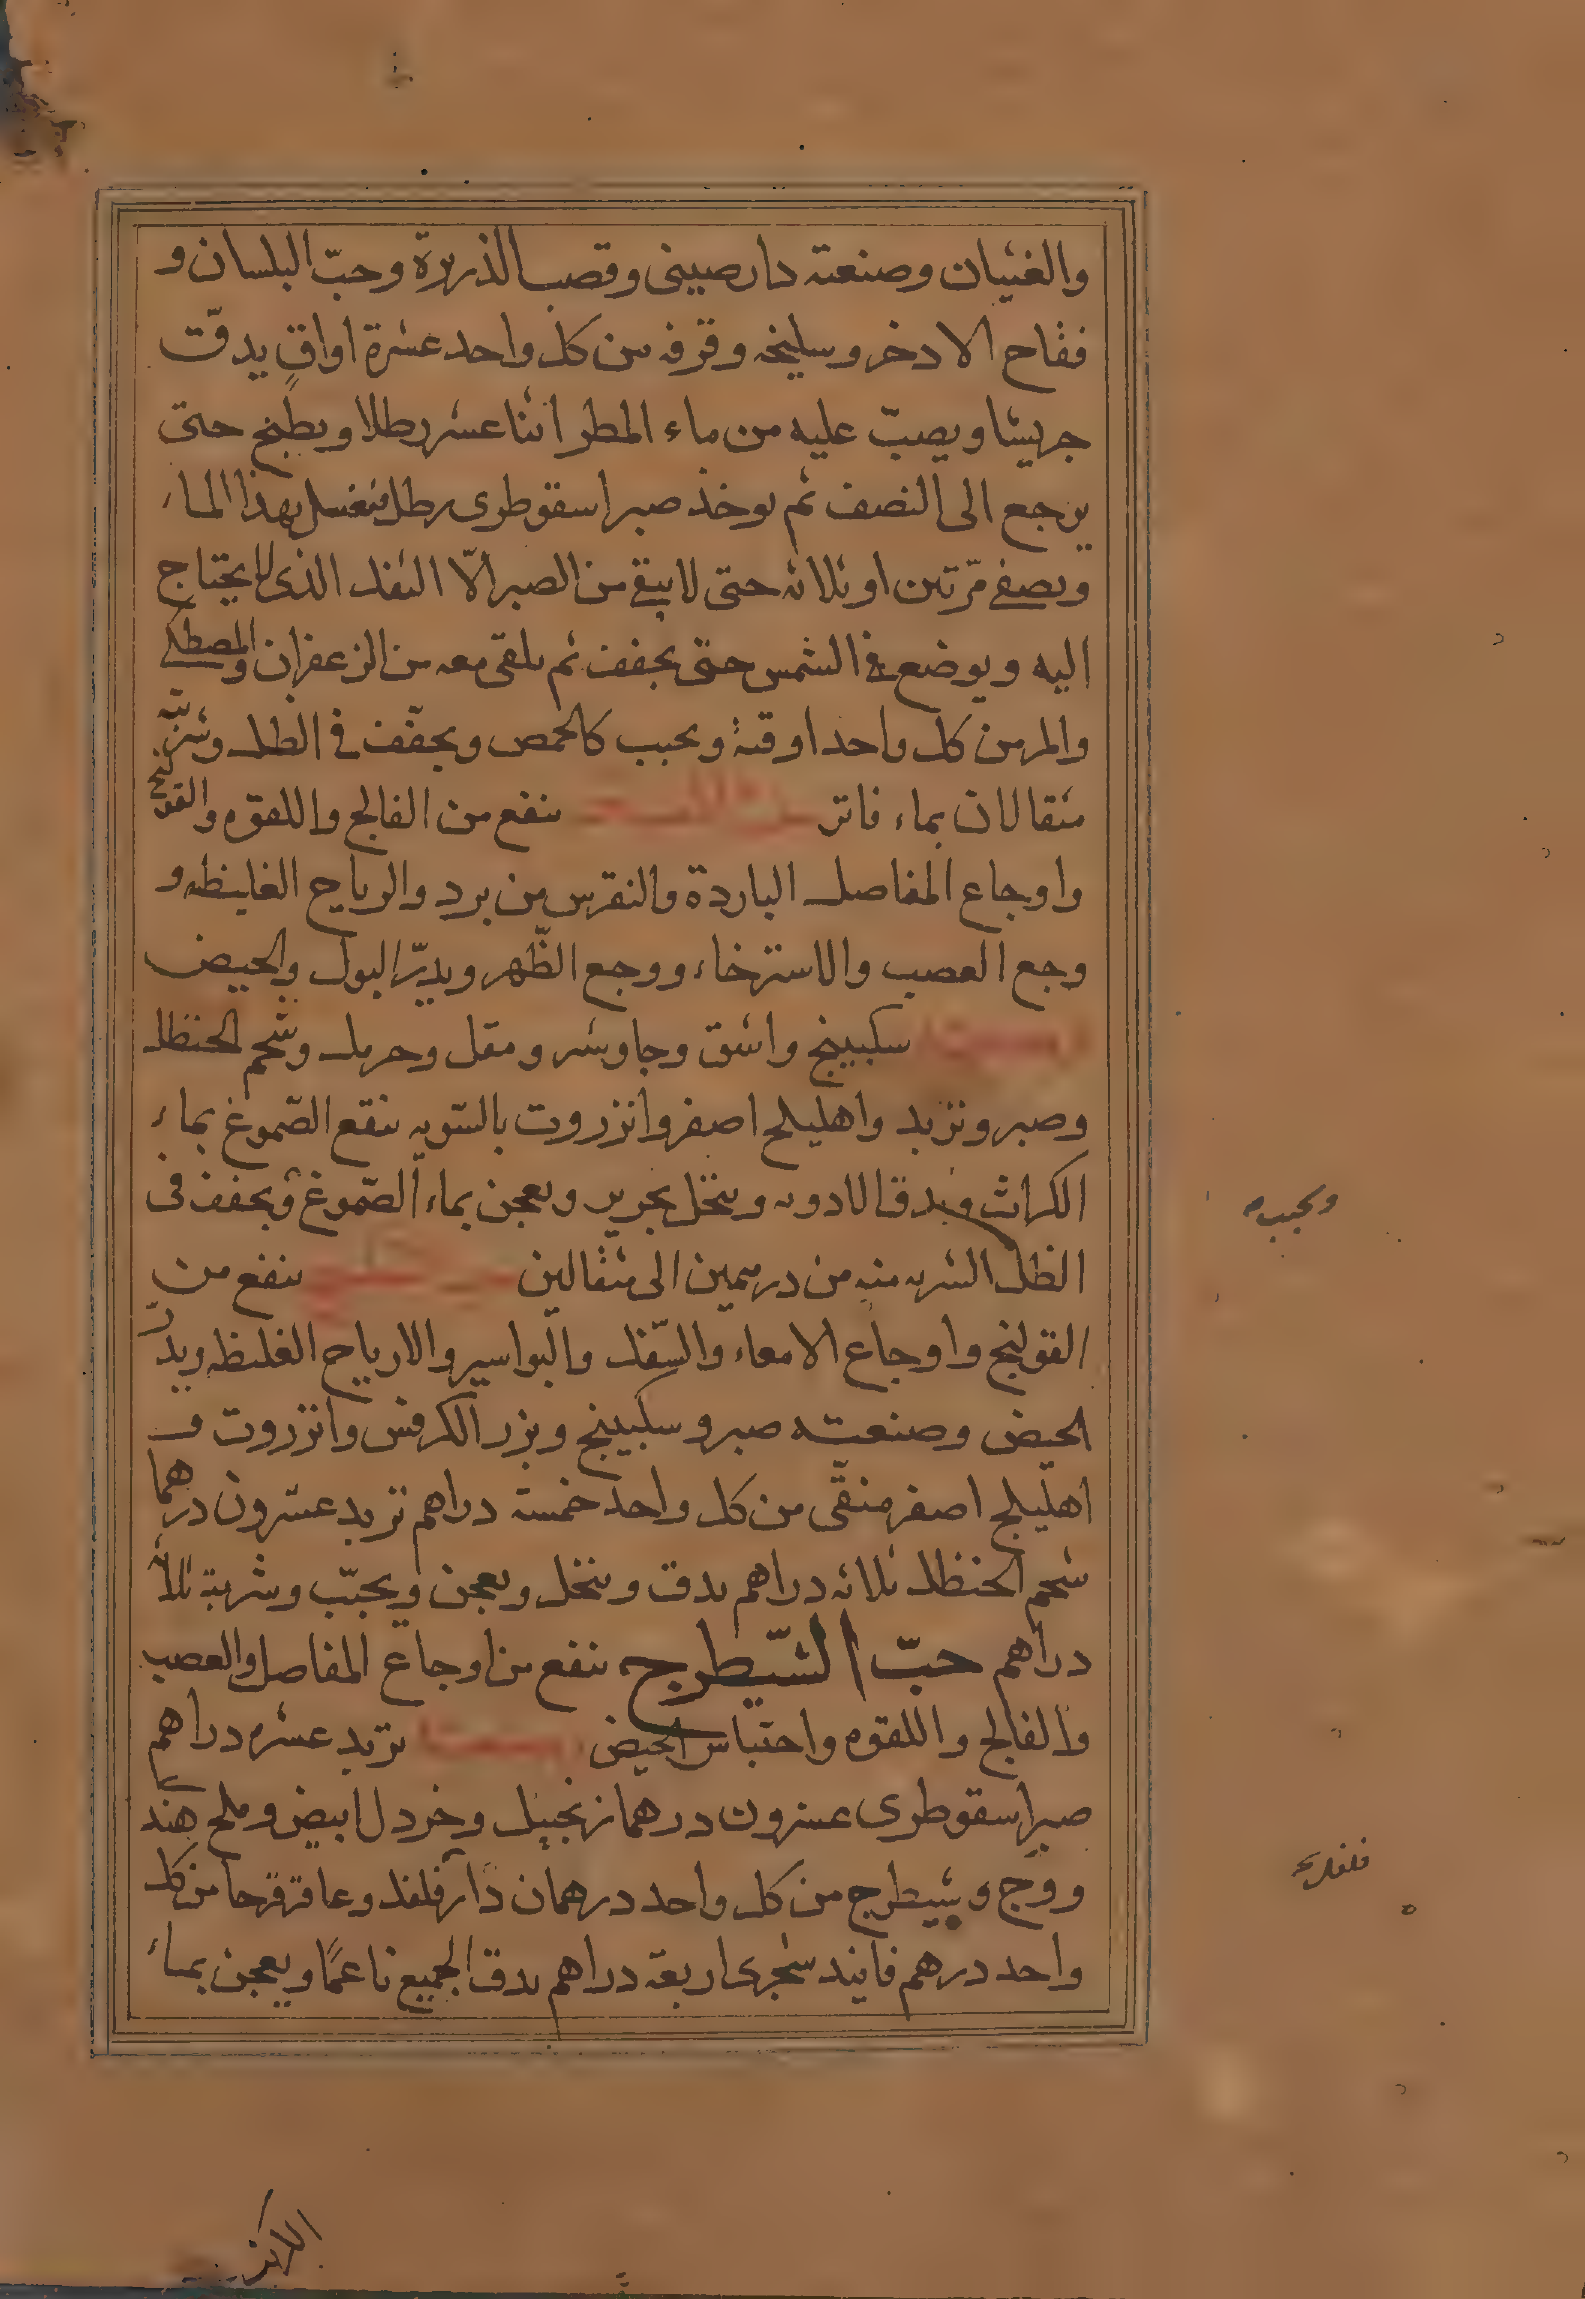 والغثيان وصنعته دارصينى وقصب الذريرة وحبّ البلسان و
فقاح الادخر وسليخه وقرفه من كل واحد عشرة اواقٍ يدقّ
جريشا ويصبّ عليه من ماء المطر اثنا عشر رطلا ويطبخ حتى
يرجع الى النصف ثم يوخذ صبر اسقوطرى رطل فيغسل بهذا الماء
ويصفى مرّتين او ثلاثه حتى لا يبقى من الصبر الّا الثفل الذى لا يحتاج
اليه ويوضع فى الشمس حتى يجفف ثم يلقى معه من الزعفران والمصطكى
والمر من كل واحد اوقية ويحبب كالحمص ويجفّف فى الظل وشربته
مثقالان بماء فاتر ينفع من الفالج واللقوه والقولنج
واوجاع المفاصل الباردة والنقرس من برد والرياح الغليظه و
وجع العصب والاسترخاء ووجع الظّهر ويدرّ البول والحيض
سكبينج واشق وجاوشر ومقل وحرمل وشحم الحنظل
وصبر وتربد واهليلج اصفر وانزروت بالسّويه ينقع الصّموغ بماء
الكراث ويدق الادويه وينخل بحرير ويعجن بماء الصّموغ ويجفف فى
الظل الشربه منه من درهمين الى مثقالين ينفع من
القولنج واوجاع الامعاء والسّفل والبواسير والارياح الغليظه ويدرّ
الحيض وصنعته صبر وسكبينج وبزر الكرفس وانزروت و
اهليلج اصفر منقّى من كل واحد خمسة دراهم تربد عشرون درهما
شحم الحنظل ثلاثه دراهم يدق وينخل ويعجن ويحبّب وشربة ثلاثه
دراهم حبّ الشّيطرج ينفع من اوجاع المفاصل والعصب
والفالج واللقوه واحتباس الحيض تربد عشره دراهم
صبر اسقوطرى عشرون درهما زنجبيل وخردل ابيض وملح هندى
ووج وشيطرج من كل واحد درهمان دارفلفل وعاقرقرحا من كل
واحد درهم فانيد سجزى اربعة دراهم يدق الجميع ناعمًا ويعجن بماء
ويحببه